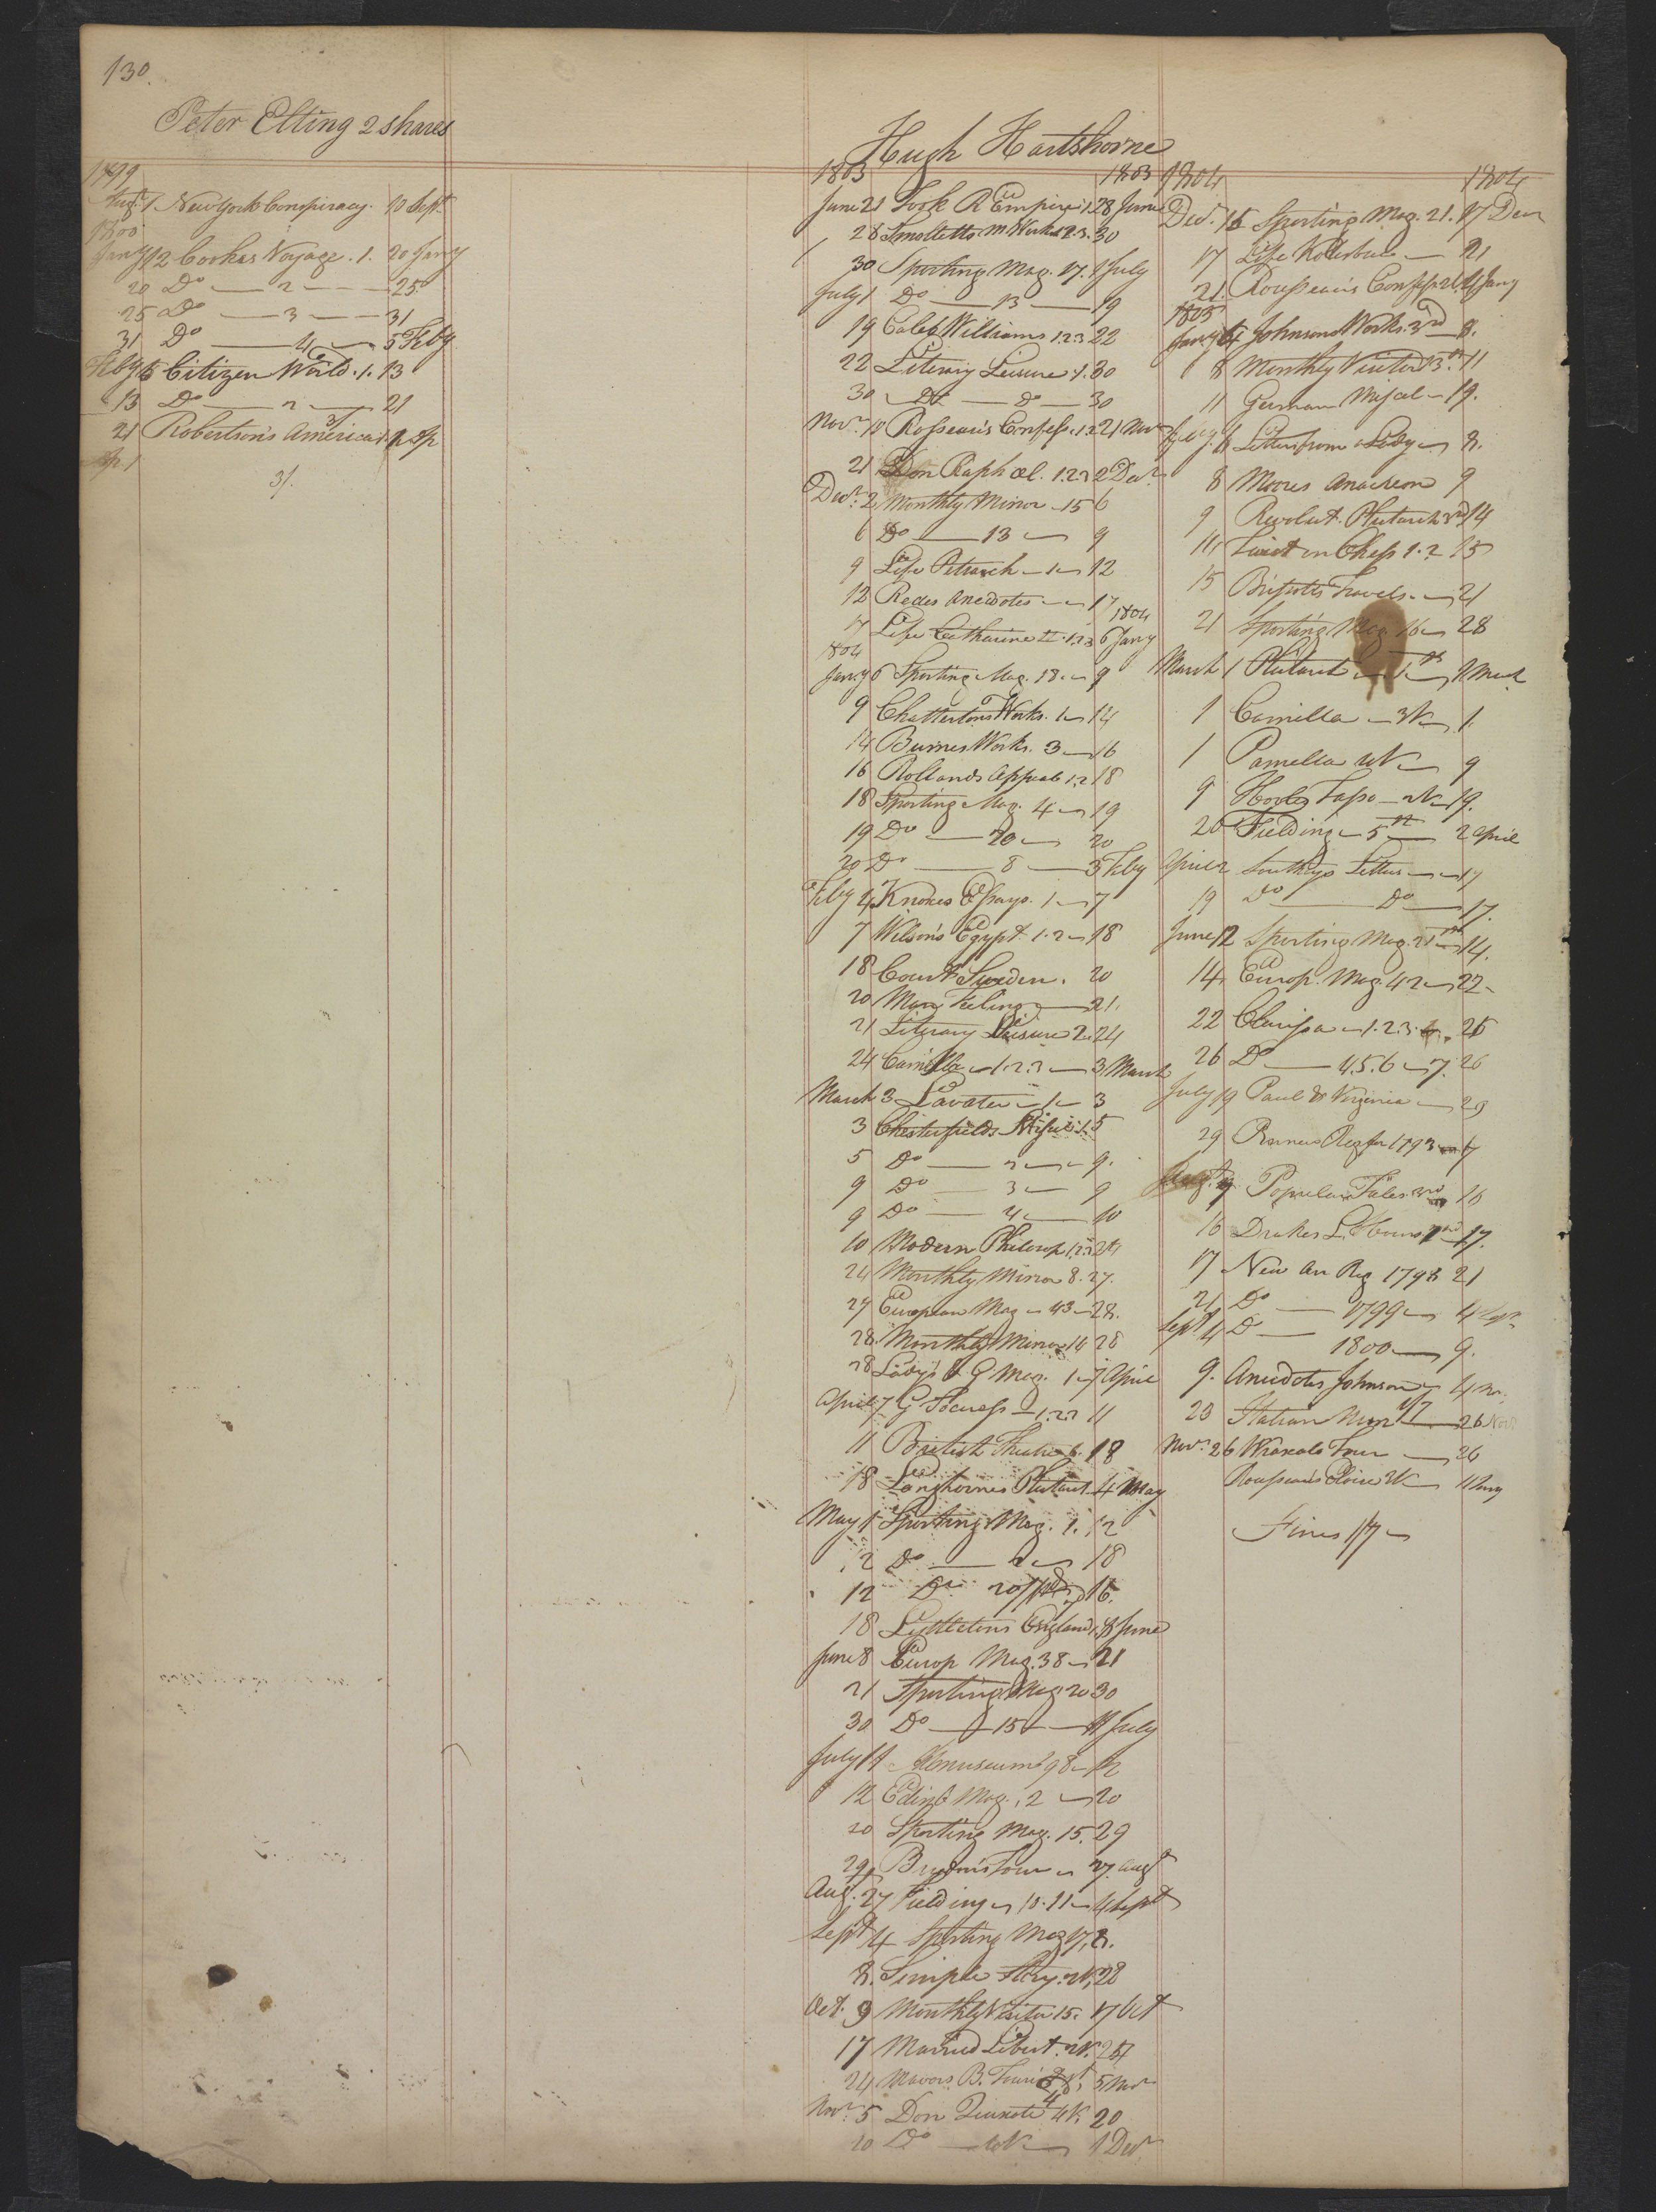 130.
Peter Elting 2 shares
1799
Augt 1 New York Conspiracy. 10 Sept.
1800
Jany 12 Cookes Voyage. 1. 20 Jany
20 Do 2 25
25 Do 3 31
31 Do 4 5 Feby
Feby 5 Citizen World. 1. 13
13 Do 2 21
21 Robertson's America 1. Ap
Ap 1
3/.
Hugh Hartshorne
1803 1803
June 21 Took A Empire 1. 28 June
28 Smolletts M Works 1.2.3. 30
30 Sporting Mag. 17. 1 July
July 1 Do 13 19
19 Caleb Williams 1.2.3 22
22 Literary Leisure 1. 30
30 Do Do 30
Novr. 10 Rosseau's Confess. 1.2 21 Novr
21 Don Raphael. 1.2.3 2 Decr.
Decr. 2 Monthly Mirror 15 6
6 Do 13 9
9 Life Petrarch 1 12
12 Redes Anecdotes 17
17 Life Catharine II. 1.2.3 6 Jany 1804
1804
Jany 6 Sporting Mag. 18. 9
9 Chattertons Works. 1 14
14 Burnes Works. 3 16
16 Rollands Appeal 1.2 18
18 Sporting Mag. 4 19
19 Do 20 20
20 Do 8 3 Feby
Feby 4 Knoxes Essays. 1 7
7 Wilson's Egypt. 1.2 18
18 Court Sweden. 20
20 Man Feeling 21.
21 Literary Leisure 2. 24
24 Camilla 1.2.3 3 March
March 3 Lavater 1 3
3 Chesterfields 1. 5
5 Do 2 9.
9 Do 3 9
9 Do 4 10
10 Modern Philosop 1.2.3 24
24 Monthly Mirror 8. 27.
27 European Mag 43 28.
28 Monthly Mirror 14 28
28 Lady's & G Mag. 1 7 April
April 7 G 1.2.3 11
11 British Theatre 6. 18
18 Langhornes Plutarch 4 May
May 1 Sporting Mag. 1. 12
12 Do 2 18
12 Do 20 16.
18 Lyttletons England 1. 8 June
June 8 Europ Mag. 38 21
21 Sporting Mag 20 30
30 Do 15 11 July
July 11 98 12
12 Edinb Mag. 12 20
20 Sporting Mag. 15. 29
29 Brydon's Tour 27 Augt
Augt. 27 Fielding 10.11 4 Sept
Sept 4 Sporting Mag 17. 8.
8. Simple Story. 2V. 28
Oct. 9 Monthly Visitor 15. 17 Oct
17 Married Libert. 2V. 24
24 Mavors B. Tourist 5 Novr
Novr. 5 Don Quixote 4V 20
20 Do 4V 1 Decr
1804 1804
Decr. 15 Sporting Mag. 21. 17 Decr
17 Life Kotzebue 21
21. Rousseau's Confess. 2V. 4 Jany
1805
Jany 4 Johnsons Works. 3rd 8.
8 Monthly Visitor 13th. 11
11 German Miscel 19.
Feby. 6 Letters from a Lady 8.
8 Moores Anacreon 9
9 Revolut. Plutarch 3rd 14
14 Twist on Chess 1.2 15
15 Brissotts Travels. 21
21 Sporting Mag 16 28
March 1 Plutarch 1st 1 March
1 Camilla 3V 1.
1 Pamella 4V 9
9 Hooles Tasso 2V 19.
20 Fielding 5th 2 April
April 2 Southeys Letters 17
19 Do Do 17.
June 12 Sporting Mag. 21st 14.
14 Europ. Mag. 42 22
22 Clarissa 1.2.3. 4. 26
26 Do 4.5.6 7. 26
July 19 Paul & Virginia 29
29 Annu Reg for 1793 7
Augt. 7 Popular Tales 3rd 16
16 Drakes L. Hours 2nd 17.
17 New An Reg 1798 21
21 Do 1799 4 Sept
Sept 4 Do 1800 9.
9. Anecdotes Johnson
23 Italian 26 Novr
Novr. 26 Wraxals Tour 26
Rousseau's Eloise 3V 11 Jany
Fines 1/7